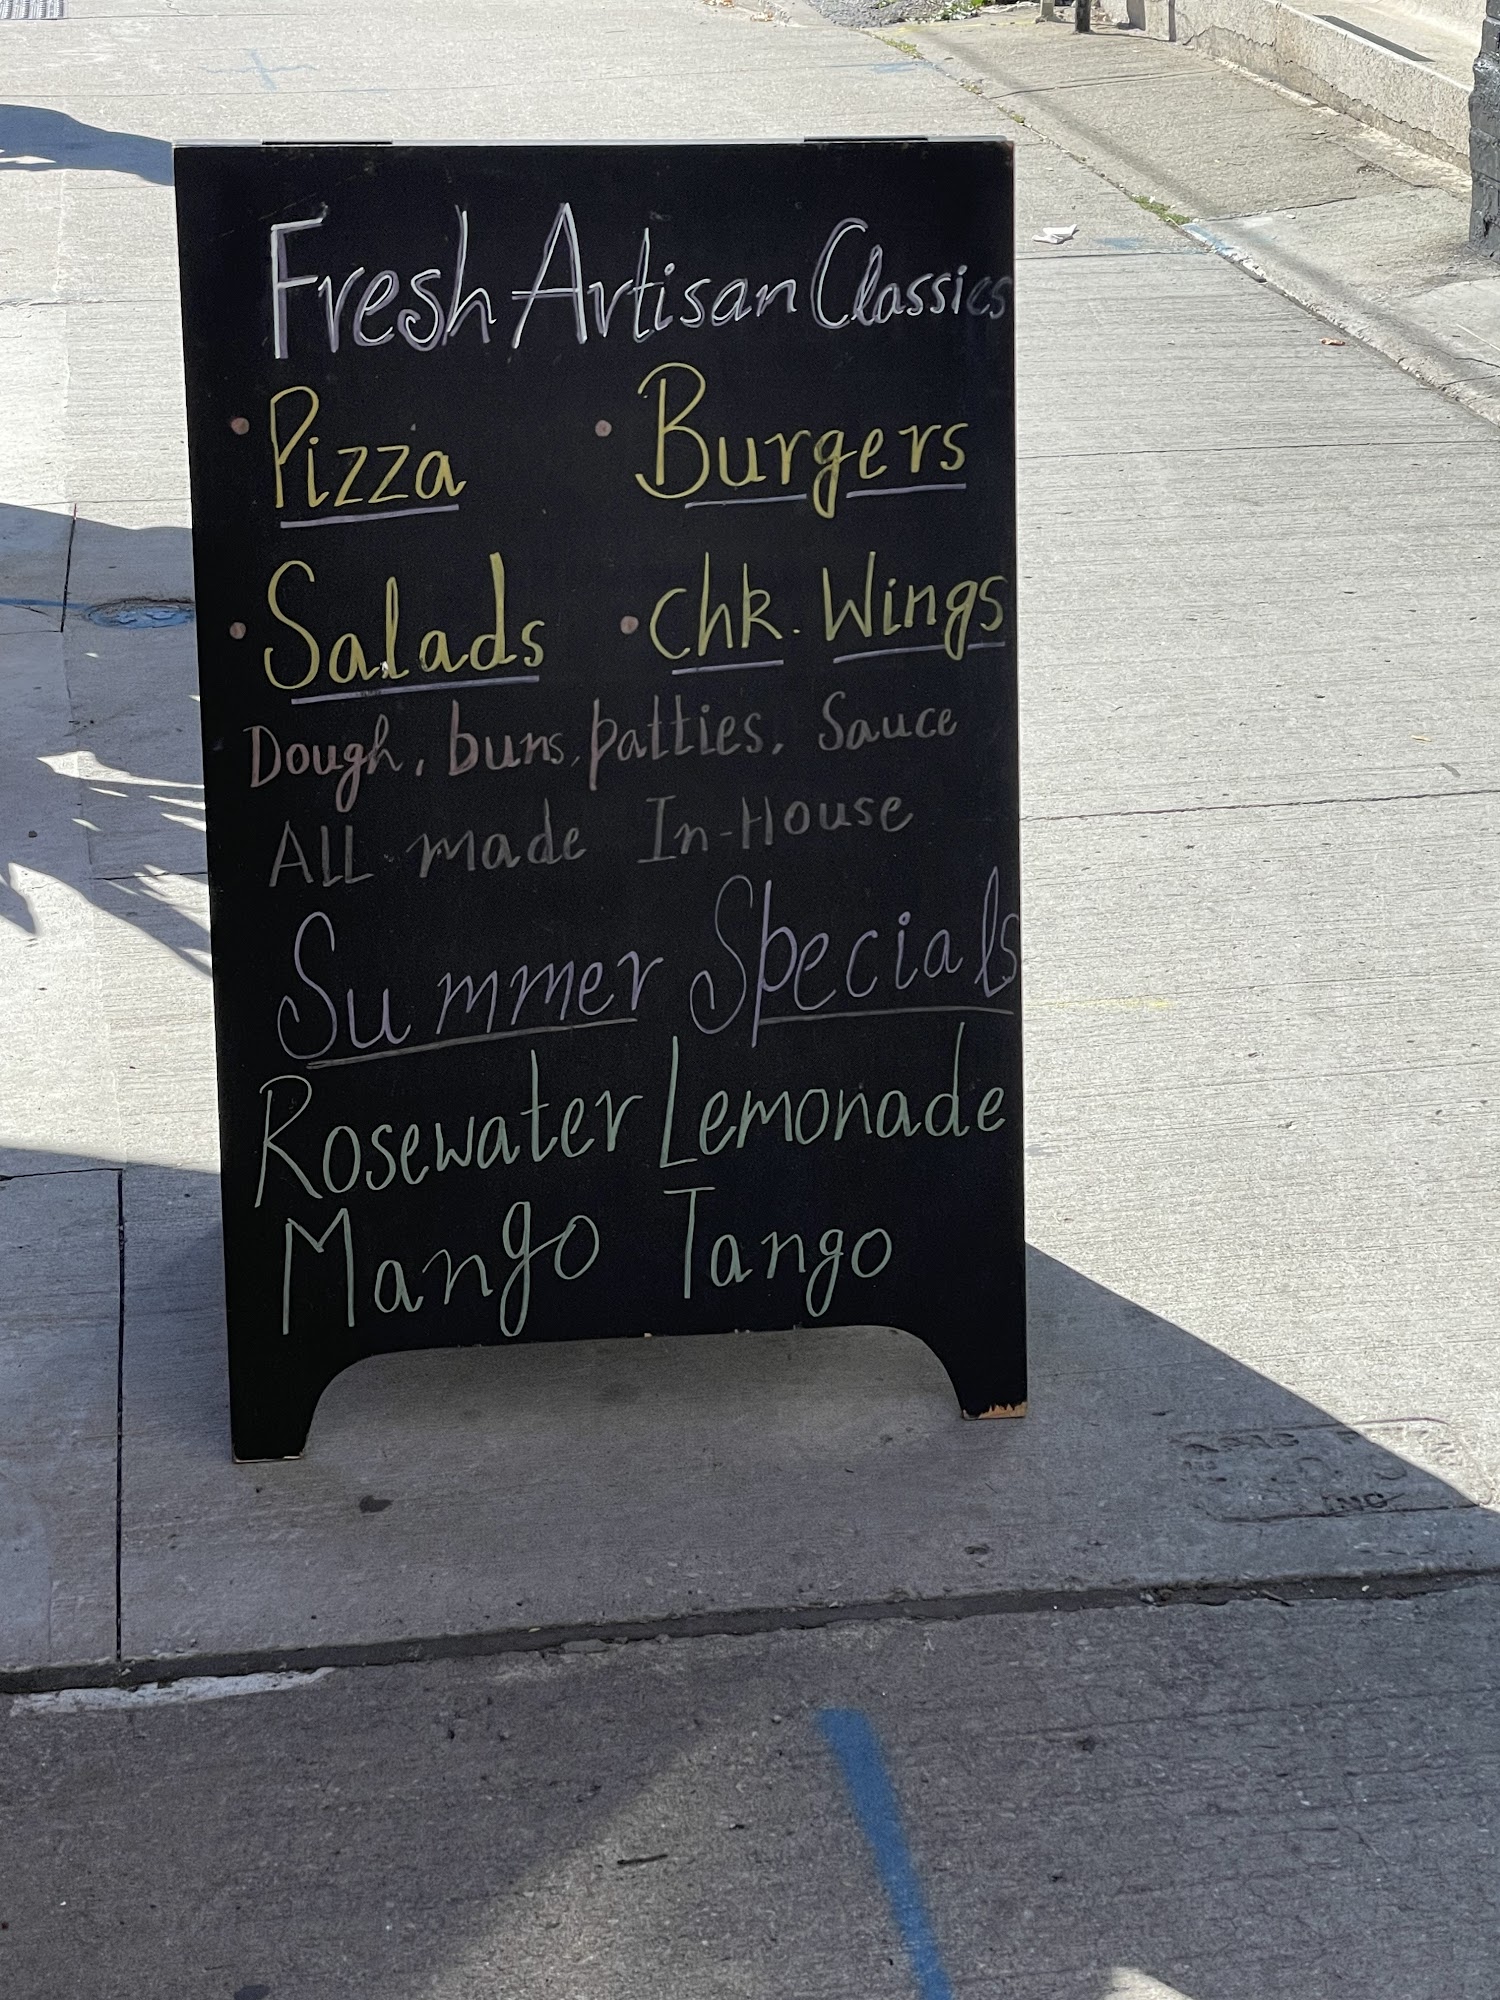 Fresh Artisan Classics
• Pizza • Burgers
• Salads • Chk. Wings
Dough, buns, patties, Sauce
ALL made In-House
Summer Specials
Rosewater Lemonade
Mango Tango
INC